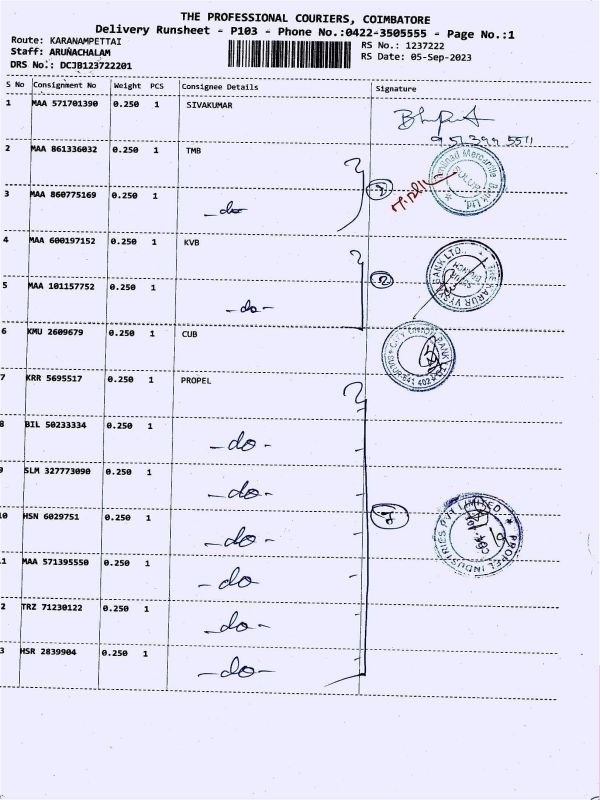 THE PROFESSIONAL COURIERS, COIMBATORE
Delivery Runsheet - P103 - Phone No.:0422-3505555 - Page No.:1
Route: KARANAMPETTAI RS No.: 1237222
Staff: ARUNACHALAM RS Date: 05-Sep-2023
DRS No.: DCJB123722201
S No Consignment No Weight PCS Consignee Details Signature
1 MAA 571701390 0.250 1 SIVAKUMAR
2 MAA 861336032 0.250 1 TMB
3 MAA 860775169 0.250 1 -do- 2
4 MAA 600197152 0.250 1 KVB
5 MAA 101157752 0.250 1 -do- 2
6 KMU 2609679 0.250 1 CUB
7 KRR 5695517 0.250 1 PROPEL
8 BIL 50233334 0.250 1 -do-
9 SLM 327773090 0.250 1 -do-
10 HSN 6029751 0.250 1 -do- 7
11 MAA 571395550 0.250 1 -do
12 TRZ 71230122 0.250 1 -do-
13 HSR 2839904 0.250 1 -do-
PROPEL INDUSTRIES PVT LIMITED